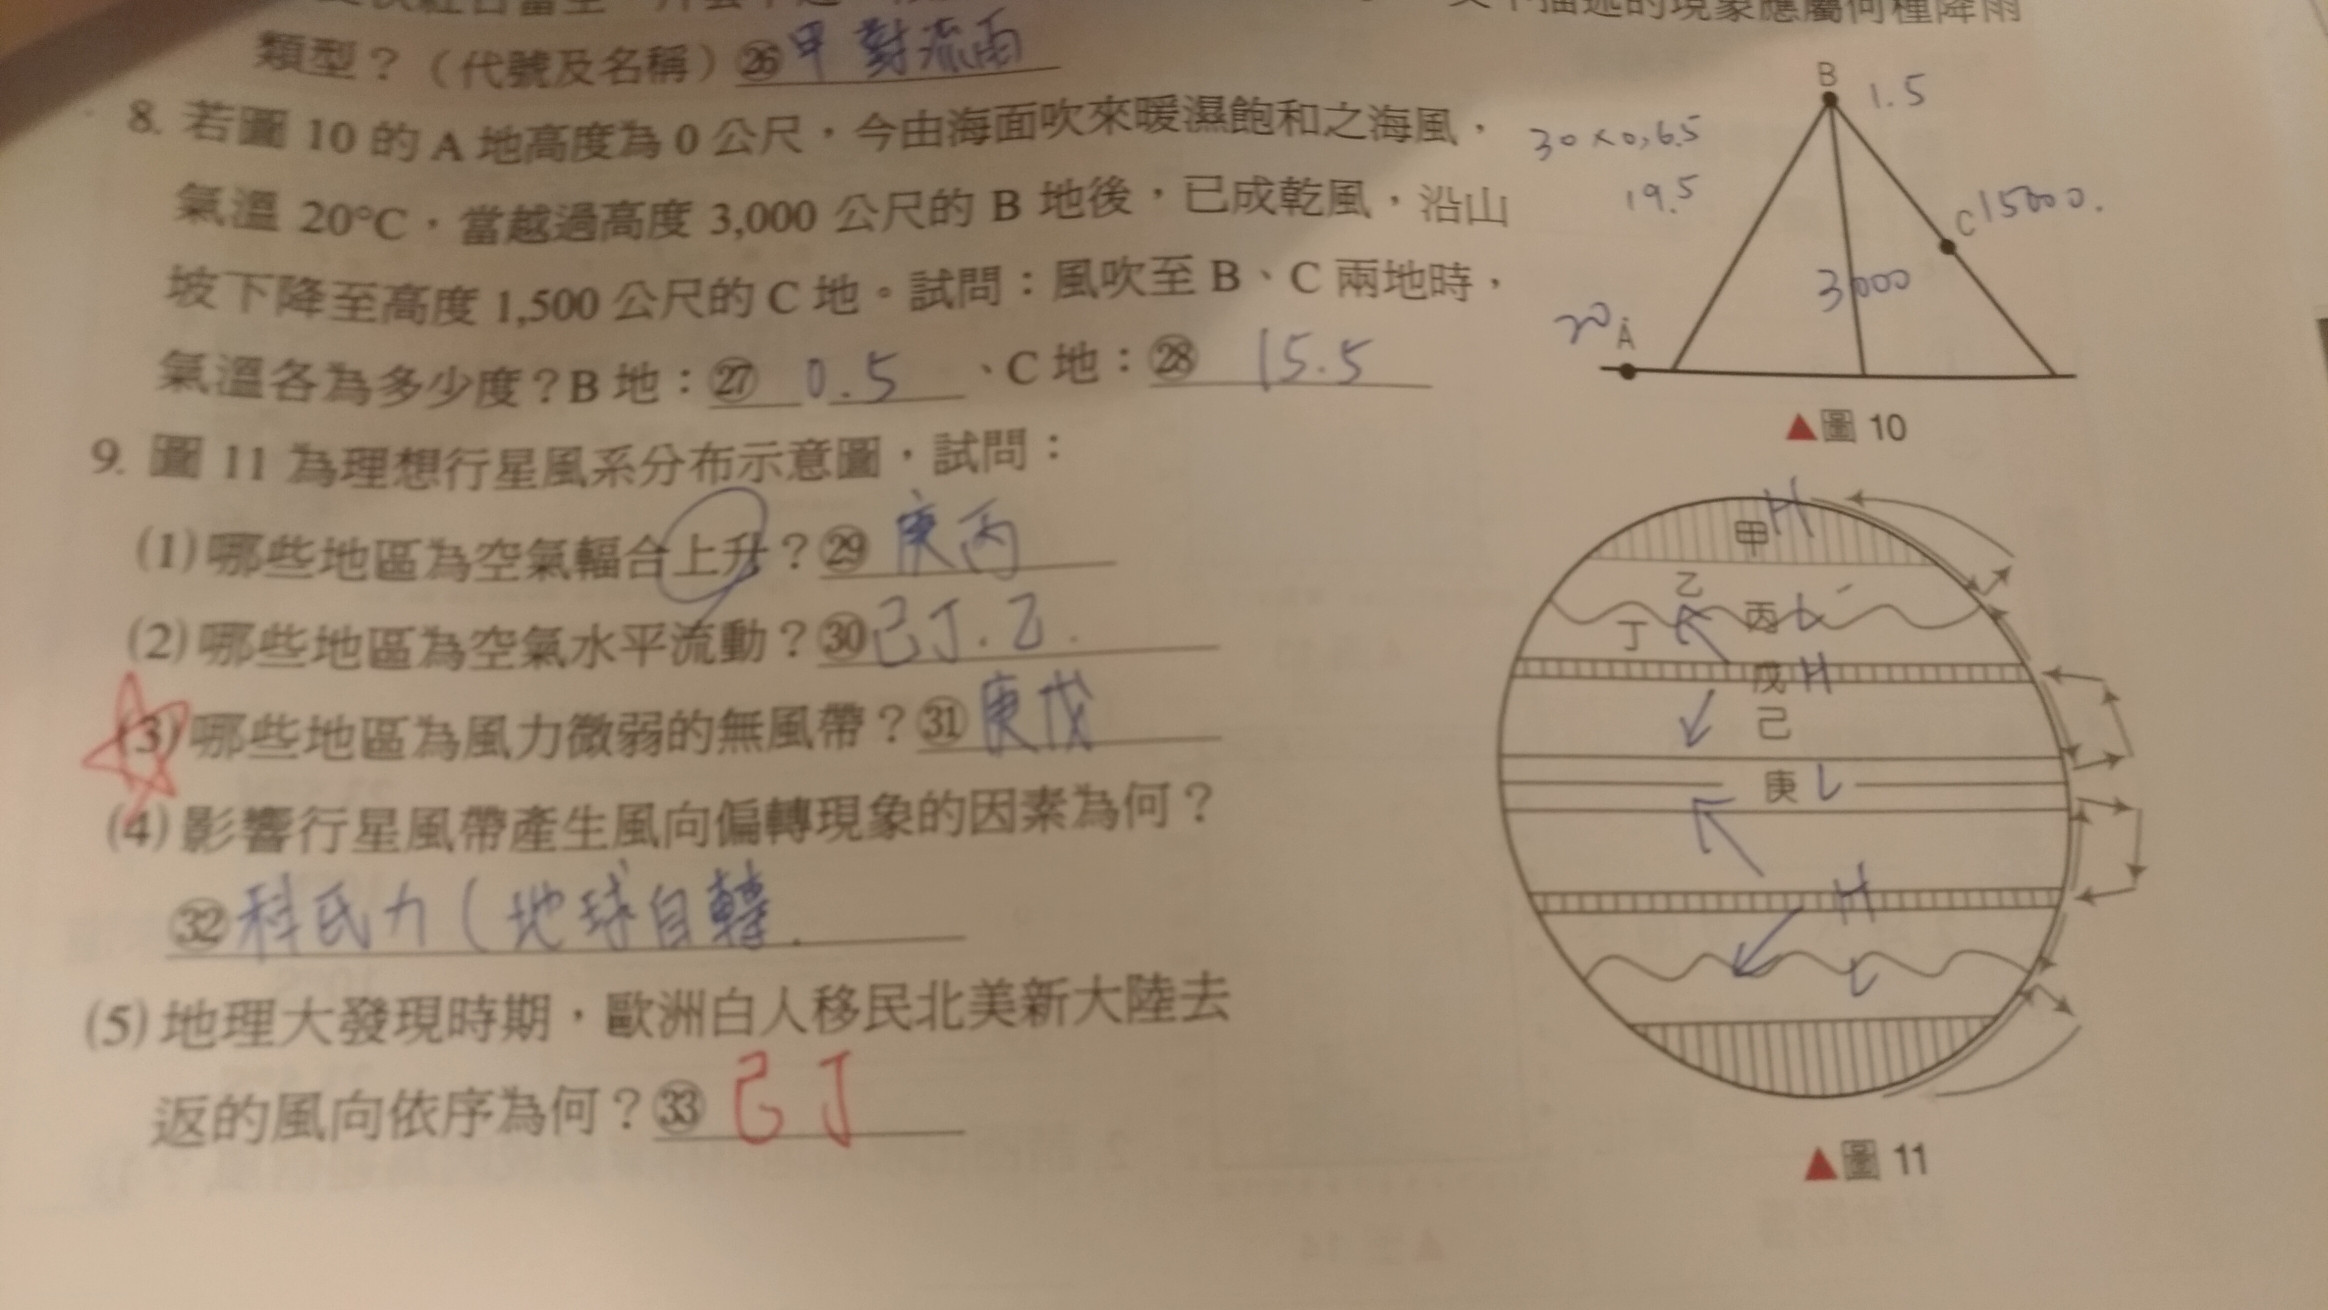 描述的現象應屬何種降雨
類型？（代號及名稱）㉖甲 對流雨
8. 若圖 10 的 A 地高度為 0 公尺，今由海面吹來暖濕飽和之海風，
氣溫 20°C，當越過高度 3,000 公尺的 B 地後，已成乾風，沿山
坡下降至高度 1,500 公尺的 C 地。試問：風吹至 B、C 兩地時，
氣溫各為多少度？B 地：㉗ 0.5 、C 地：㉘ 15.5
30×0.65
19.5
B 1.5
C 15000.
3000
20 A
▲圖 10
9. 圖 11 為理想行星風系分布示意圖，試問：
(1) 哪些地區為空氣輻合上升？㉙ 庚丙
(2) 哪些地區為空氣水平流動？㉚己丁.乙.
(3) 哪些地區為風力微弱的無風帶？㉛庚戊
(4) 影響行星風帶產生風向偏轉現象的因素為何？
㉜科氏力(地球自轉.
(5) 地理大發現時期，歐洲白人移民北美新大陸去
返的風向依序為何？㉝ 己丁
甲 H
乙
丙 L
丁
戊 H
己
庚 L
H
L
▲圖 11